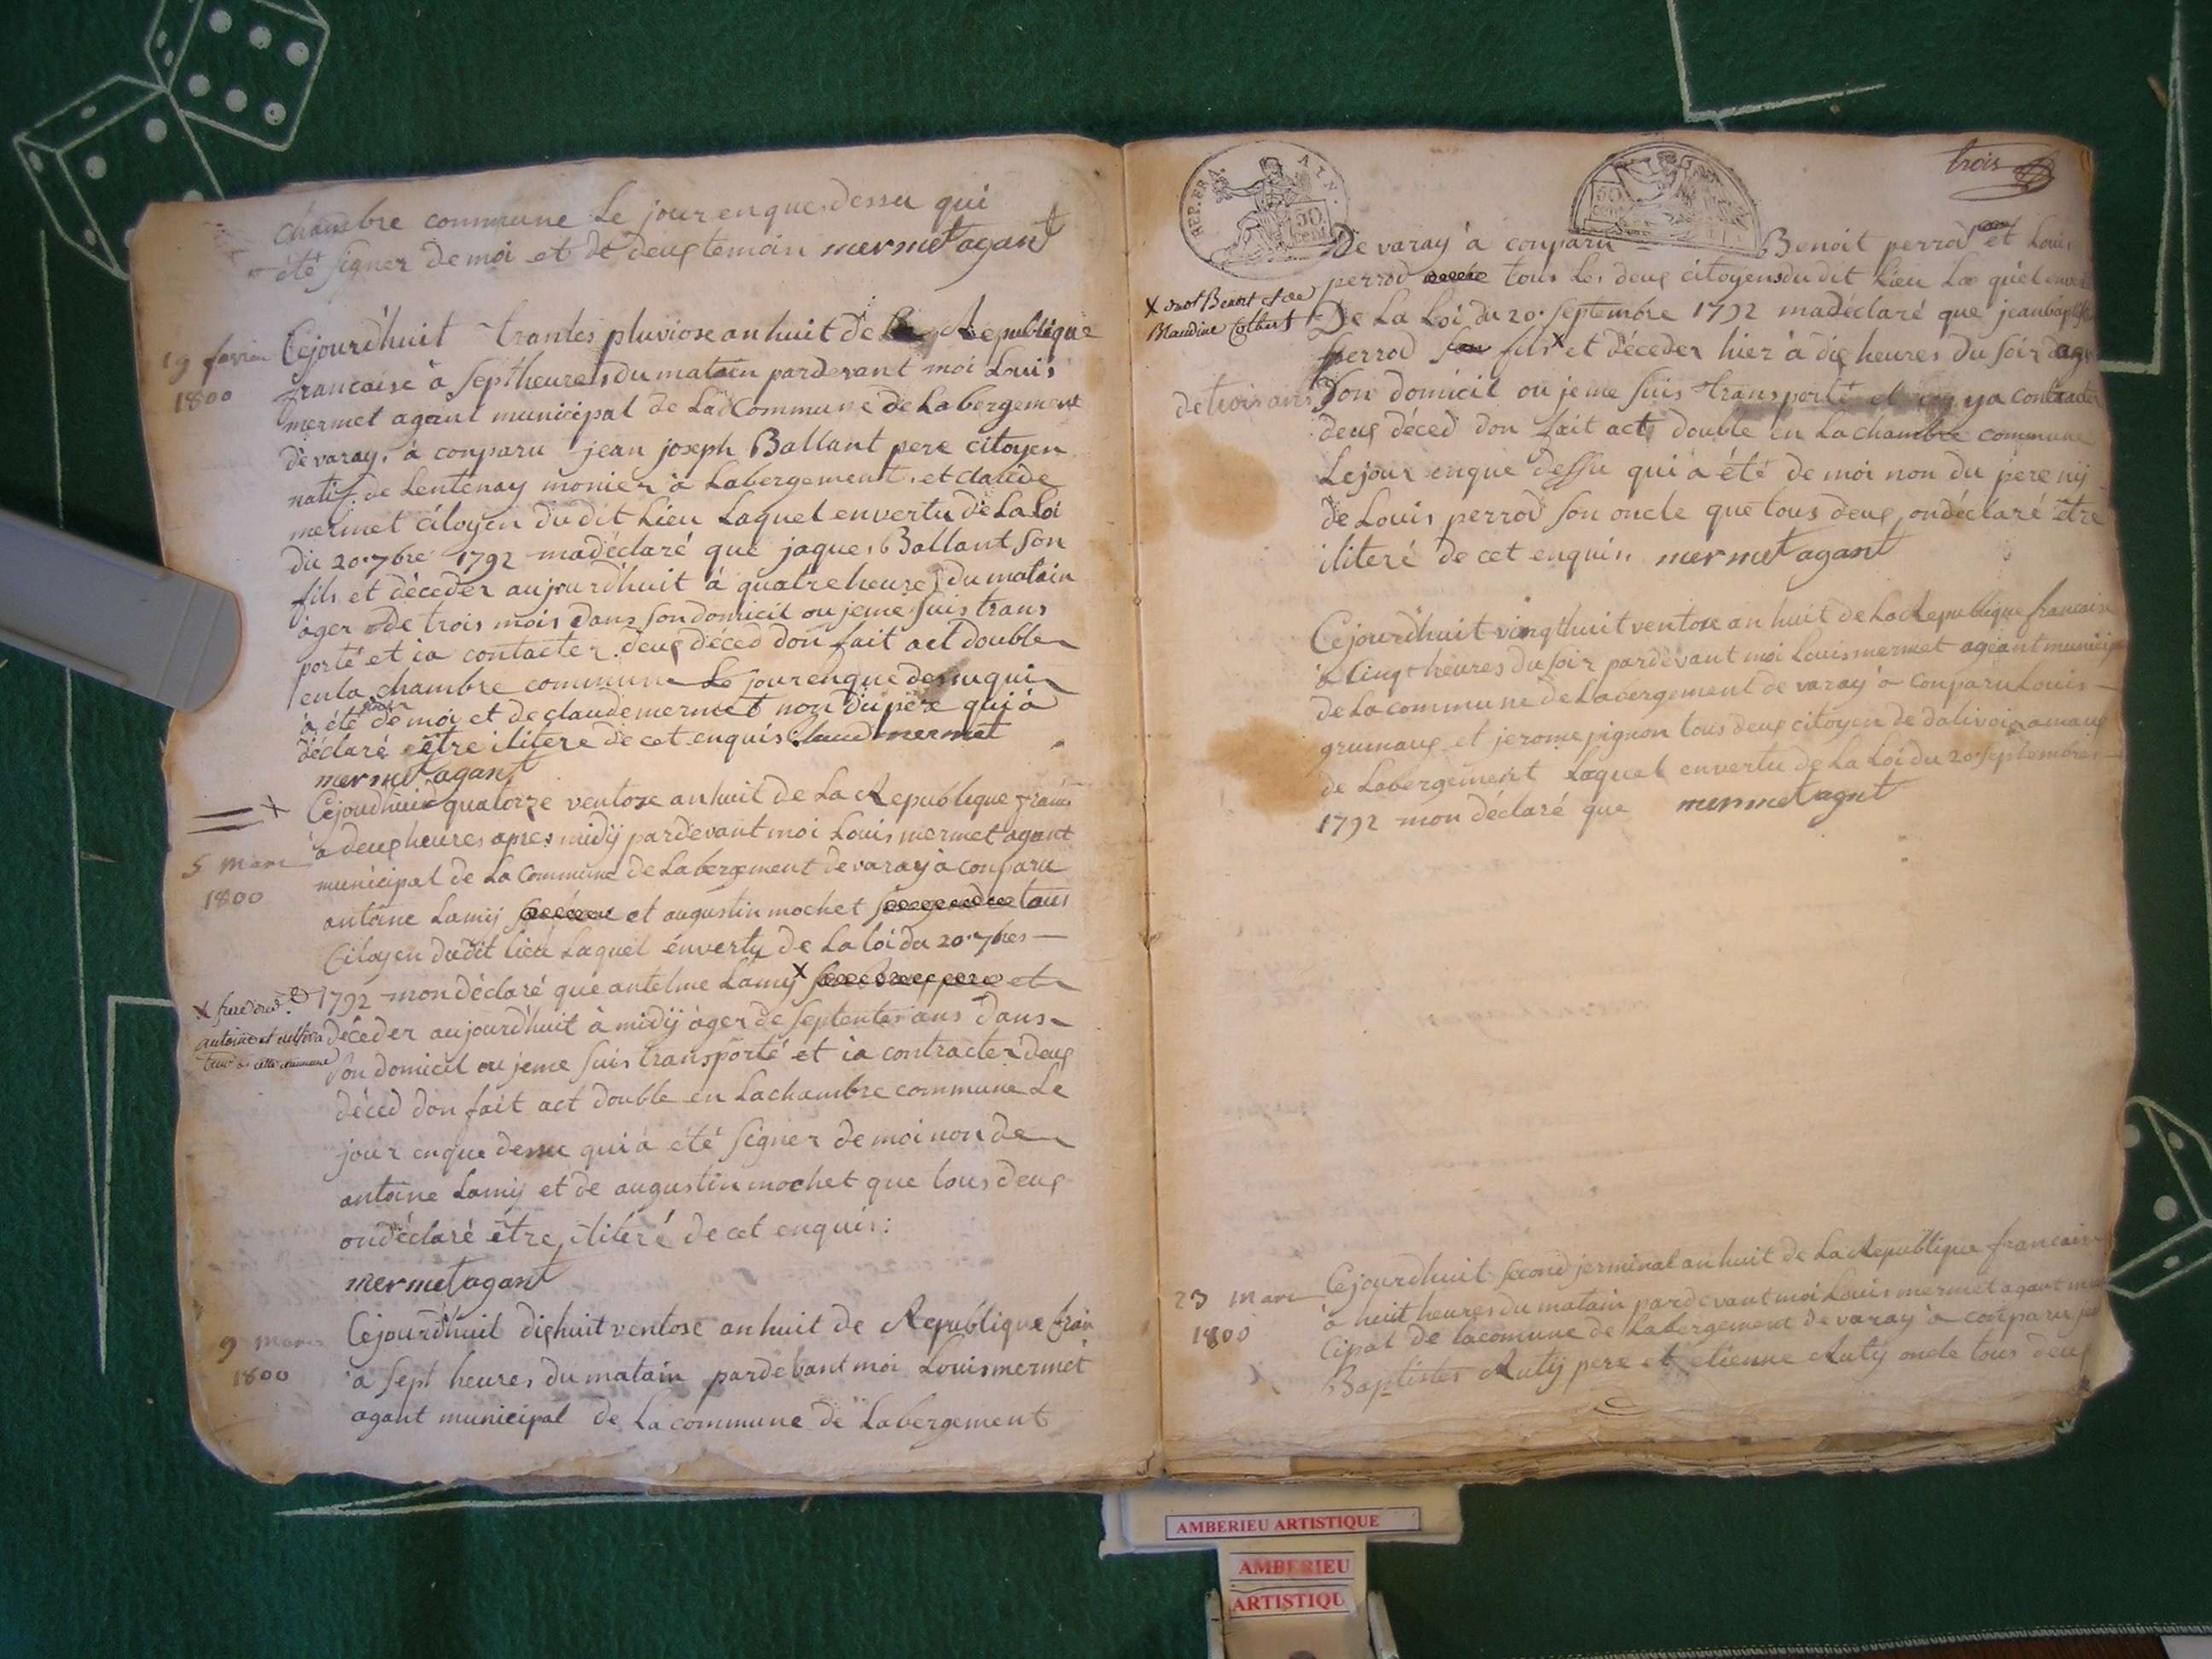 chambre commune Le jour en que dessu qui
été signer de moi et de deus temoin mermet agant
19 fevrier
1800
Cejourdhuit trantes pluviose an huit de la Republique
francaise à sept heures du matain pardevant moi Louis
mermet agant municipal de La Commune de Labergement
de varay, à conparu jean joseph Ballant pere citoyen
natif de Lentenay monier à Labergement, et claude
mermet citoyen du dit Lieu Laquel envertu de La Loi
du 20. 7bre 1792 madéclaré que jaques Ballant son
fils et déceder aujourdhuit à quatre heures du matain
àger de trois mois dans son domicil ou jeme suis trans
porté et ia contacter deus déced don fait act double
en la chambre commune Le jour enque dessu qui
à été de moi et de claude mermet non du père qui à
déclaré être ilitere de cet enquis Claud mermet
mermet agant
Cejoudhuit quatorze ventose an huit de La Republique frans
à deus heures apres midij pardevant moi Louis mermet agant
5 Mars
1800
municipal de La Commune de Labergement de varay à conparu
antoine Lamij et augustin mochet tous
Citoyen dudit lieu Laquel énvertu de La loi du 20. 7bres
1792 mon déclaré que antelme Lamij X et
X frere dud.
antoine et
de cette commune
déceder aujourdhuit à midij àger de septentes ans dans
son domicil ou jeme suis transporté et ia contracter deus
déced don fait act double en La chambre commune Le
jour enque dessu qui à été signer de moi non de
antoine Lamij et de augustin mochet que tous deus
ondéclaré être iliteré de cet enquis:
mermet agant
9 Mars
1800
Cejourdhuit dishuit ventose an huit de Republique fran
à sept heures du matain pardebant moi Louis mermet
agant municipal de La commune de Labergement
REP. FRA.
50
cent
50
trois
De varay à conparu Benoit perrod et Louis
perrod tous Les deus citoyens du dit Lieu La quel
De La Loi du 20. septembre 1792 madéclaré que jean baptiste
X dud. Benoit et de
Blaudine Colbert
perrod fils X et déceder hier à dis heures du soir
de trois ans
son domicil ou je me suis transporté et ya contracter
deus déced don fait act double en La chambre commune
Le jour enque dessu qui à été de moi non du père nij
de Louis perrod son oncle que tous deus ondéclaré être
iliteré de cet enquis. mermet agant
Cejourdhuit vingthuit ventose an huit de La Republique francaise
à Cinq heures du soir pardevant moi Louis mermet agant
de La commune de Labergement de varay à conparu Louis
grumaus et jerome pignon tous deus citoyen de
de Labergement Laquel envertu de La Loi du 20 septembres
1792 mon déclaré que mermet agnt
23 Mars
1800
Cejourdhuit second jerminal an huit de La Republique francaise
à huit heures du matain pardevant moi Louis mermet agant
cipal de la comune de Labergement de varay à conparu
Baptistes Rutij pere et etienne Rutij oncle tous deus
AMBERIEU ARTISTIQUE
AMBERIEU
ARTISTIQU